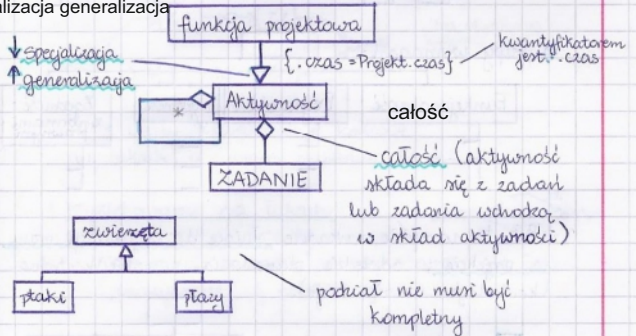 alizacja generalizacja
funkcja projektowa
specjalizacja
generalizacja
{.czas = Projekt.czas}
kwantyfikatorem
jest .czas
Aktywność
*
całość
ZADANIE
całość (aktywność
składa się z zadań
lub zadania wchodzą
w skład aktywności)
zwierzęta
ptaki
płazy
podział nie musi być
kompletny